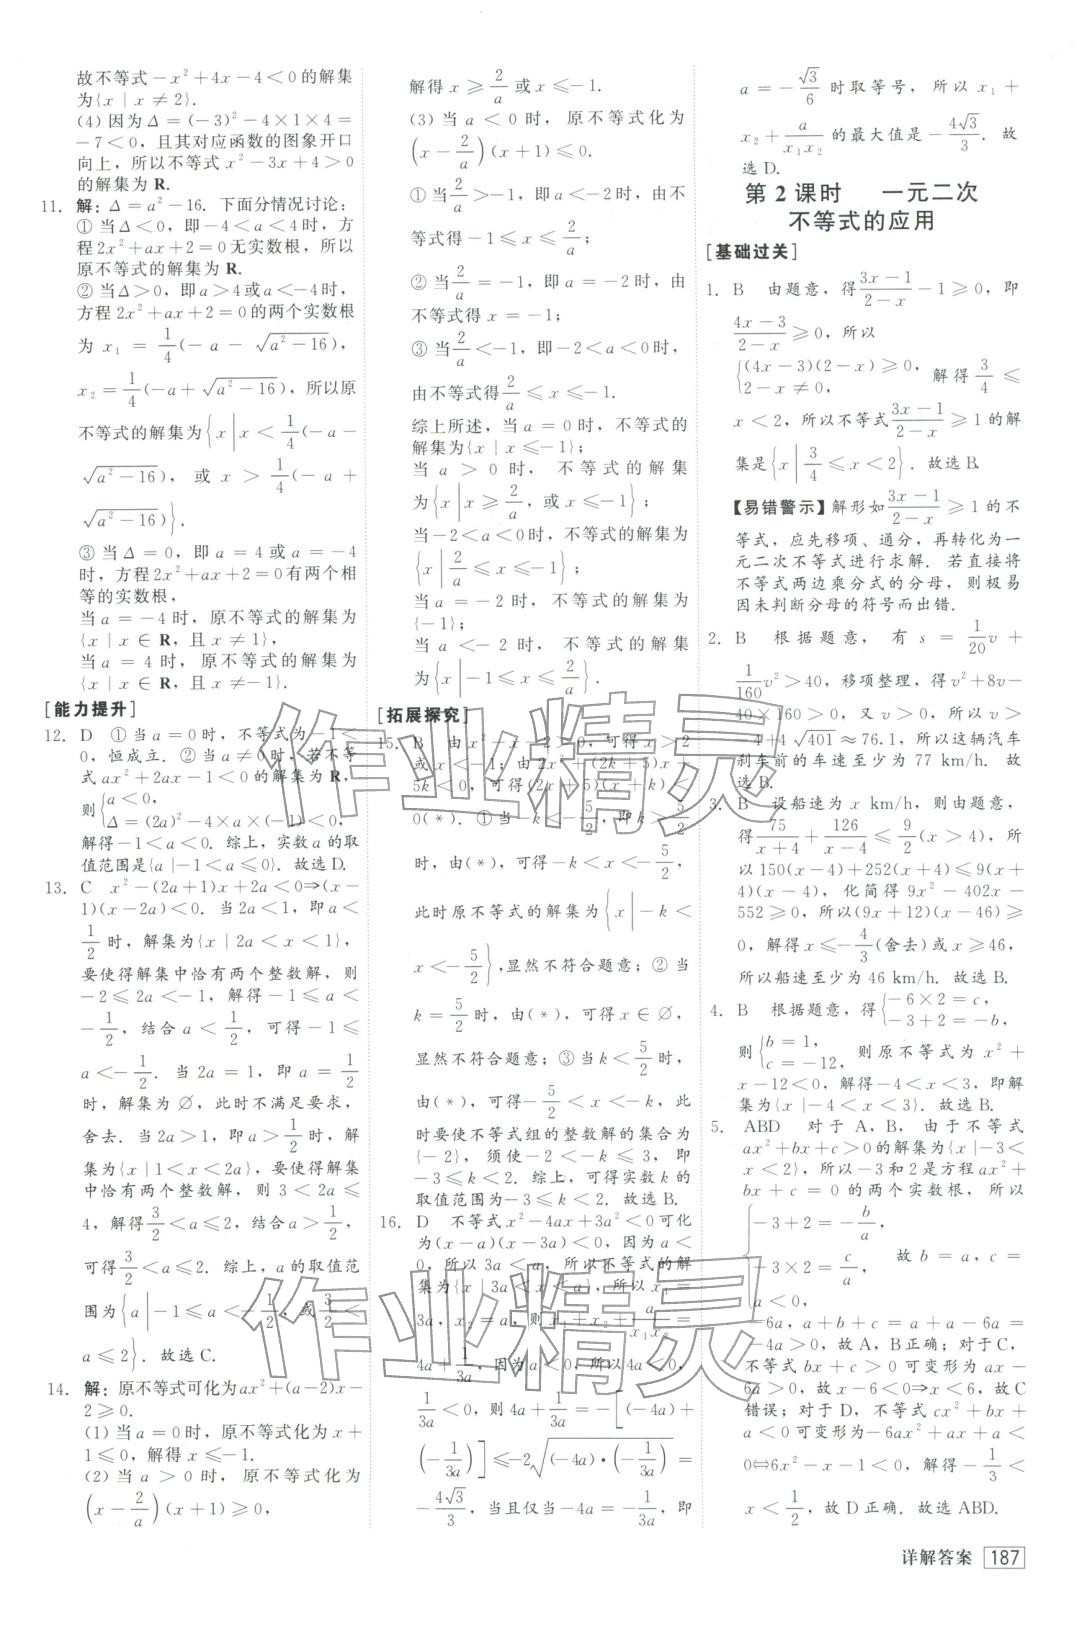 故不等式−x²+4x−4<0的解集
为{x | x≠2}.
(4) 因为Δ=(−3)²−4×1×4=
−7<0，且其对应函数的图象开口
向上，所以不等式 x²−3x+4>0
的解集为 R.
11. 解：Δ=a²−16. 下面分情况讨论：
① 当Δ<0，即−4<a<4时，方
程2x²+ax+2=0无实数根，所以
原不等式的解集为 R.
② 当Δ>0，即a>4或a<−4时，
方程2x²+ax+2=0的两个实数根
为 x₁ = 1/4(−a − √(a²−16))，
x₂ = 1/4(−a + √(a²−16))，所以原
不等式的解集为{x | x < 1/4(−a −
√(a²−16))，或 x > 1/4(−a +
√(a²−16))}.
③ 当Δ=0，即 a=4 或 a=−4
时，方程2x²+ax+2=0有两个相
等的实数根，
当 a=−4 时，原不等式的解集为
{x | x∈R，且 x≠1}，
当 a=4 时，原不等式的解集为
{x | x∈R，且 x≠−1}.
[能力提升]
12. D ① 当 a=0 时，不等式为−1<
0，恒成立. ② 当 a≠0时，若不等
式 ax²+2ax−1<0的解集为 R，
则{a<0，
Δ=(2a)²−4×a×(−1)<0，
解得−1<a<0. 综上，实数 a 的取
值范围是{a |−1<a≤0}. 故选 D.
13. C x²−(2a+1)x+2a<0⇒(x−
1)(x−2a)<0. 当2a<1，即 a<
1/2 时，解集为{x | 2a<x<1}，
要使得解集中恰有两个整数解，则
−2≤2a<−1，解得−1≤a<
−1/2，结合 a<1/2，可得−1≤
a<−1/2. 当 2a=1，即 a=1/2
时，解集为∅，此时不满足要求，
舍去. 当 2a>1，即 a>1/2 时，解
集为{x | 1<x<2a}，要使得解集
中恰有两个整数解，则 3<2a≤
4，解得3/2<a≤2，结合 a>1/2，
可得3/2<a≤2. 综上，a的取值范
围为{a | −1≤a<−1/2，或3/2<
a≤2}. 故选 C.
14. 解：原不等式可化为ax²+(a−2)x−
2≥0.
(1) 当 a=0 时，原不等式化为 x+
1≤0，解得 x≤−1.
(2) 当 a>0 时，原不等式化为
(x−2/a)(x+1)≥0，
解得 x≥2/a 或 x≤−1.
(3) 当 a<0 时，原不等式化为
(x−2/a)(x+1)≤0.
① 当2/a>−1，即 a<−2 时，由不
等式得−1≤x≤2/a；
② 当2/a=−1，即 a=−2 时，由
不等式得 x=−1；
③ 当2/a<−1，即−2<a<0 时，
由不等式得2/a≤x≤−1.
综上所述，当 a=0 时，不等式的
解集为{x | x≤−1}；
当 a>0 时，不等式的解集
为{x | x≥2/a，或 x≤−1}；
当−2<a<0时，不等式的解集为
{x | 2/a≤x≤−1}；
当 a=−2 时，不等式的解集为
{−1}；
当 a<−2 时，不等式的解集
为{x | −1≤x≤2/a}.
[拓展探究]
15. B 由 x²−x−2>0，可得 x>2
或 x<−1；由 2x²+(2k+5)x+
5k<0，可得(2x+5)(x+k)<
0(*). ① 当−k<−5/2，即k>5/2
时，由(*)，可得−k<x<−5/2，
此时原不等式的解集为{x | −k<
x<−5/2}，显然不符合题意；② 当
k=5/2 时，由(*)，可得 x∈∅，
显然不符合题意；③ 当 k<5/2 时，
由(*)，可得−5/2<x<−k，此
时要使不等式组的整数解的集合为
{−2}，须使−2<−k≤3，即
−3≤k<2. 综上，可得实数 k 的
取值范围为−3≤k<2. 故选 B.
16. D 不等式 x²−4ax+3a²<0 可化
为(x−a)(x−3a)<0，因为 a<
0，所以 3a<a，所以不等式的解
集为{x | 3a<x<a}，所以 x₁=
3a，x₂=a，则 x₁+x₂+a/(x₁x₂)=
4a+1/(3a)，因为 a<0，所以 4a+
1/(3a)<0，则 4a+1/(3a)=−[(−4a)+
(−1/(3a))]≤−2√((−4a)·(−1/(3a)))=
−4√3/3，当且仅当−4a=−1/(3a)，即
a=−√3/6 时取等号，所以 x₁+
x₂+a/(x₁x₂) 的最大值是−4√3/3. 故
选 D.
第 2 课时 一元二次
不等式的应用
[基础过关]
1. B 由题意，得(3x−1)/(2−x)−1≥0，即
(4x−3)/(2−x)≥0，所以
{(4x−3)(2−x)≥0，
2−x≠0，
解得3/4≤
x<2，所以不等式(3x−1)/(2−x)≥1的解
集是{x | 3/4≤x<2}. 故选 B.
【易错警示】解形如(3x−1)/(2−x)≥1的不
等式，应先移项、通分，再转化为一
元二次不等式进行求解. 若直接将
不等式两边乘分式的分母，则极易
因未判断分母的符号而出错.
2. B 根据题意，有 s=1/20 v+
1/160 v²>40，移项整理，得 v²+8v−
40×160>0，又 v>0，所以 v>
−4+4√401≈76.1，所以这辆汽车
刹车前的车速至少为 77 km/h. 故
选 B.
3. B 设船速为 x km/h，则由题意，
得75/(x+4)+126/(x−4)≤9/2(x>4)，所
以 150(x−4)+252(x+4)≤9(x+
4)(x−4)，化简得 9x²−402x−
552≥0，所以(9x+12)(x−46)≥
0，解得 x≤−4/3(舍去)或 x≥46，
所以船速至少为 46 km/h. 故选 B.
4. B 根据题意，得{−6×2=c，
−3+2=−b，
则{b=1，
c=−12，
则原不等式为 x²+
x−12<0，解得−4<x<3，即解
集为{x |−4<x<3}. 故选 B.
5. ABD 对于 A，B，由于不等式
ax²+bx+c>0的解集为{x |−3<
x<2}，所以−3和2是方程ax²+
bx+c=0 的两个实数根，所以
{−3+2=−b/a，
−3×2=c/a，
a<0，
故 b=a，c=
−6a，a+b+c=a+a−6a=
−4a>0，故 A，B正确；对于 C，
不等式 bx+c>0 可变形为 ax−
6a>0，故 x−6<0不正确，故 C
错误；对于 D，不等式 cx²+bx+
a<0 可变形为−6ax²+ax+a<
0⇔6x²−x−1<0，解得−1/3<
x<1/2，故 D 正确. 故选 ABD.
详解答案 187
作业精灵
作业精灵